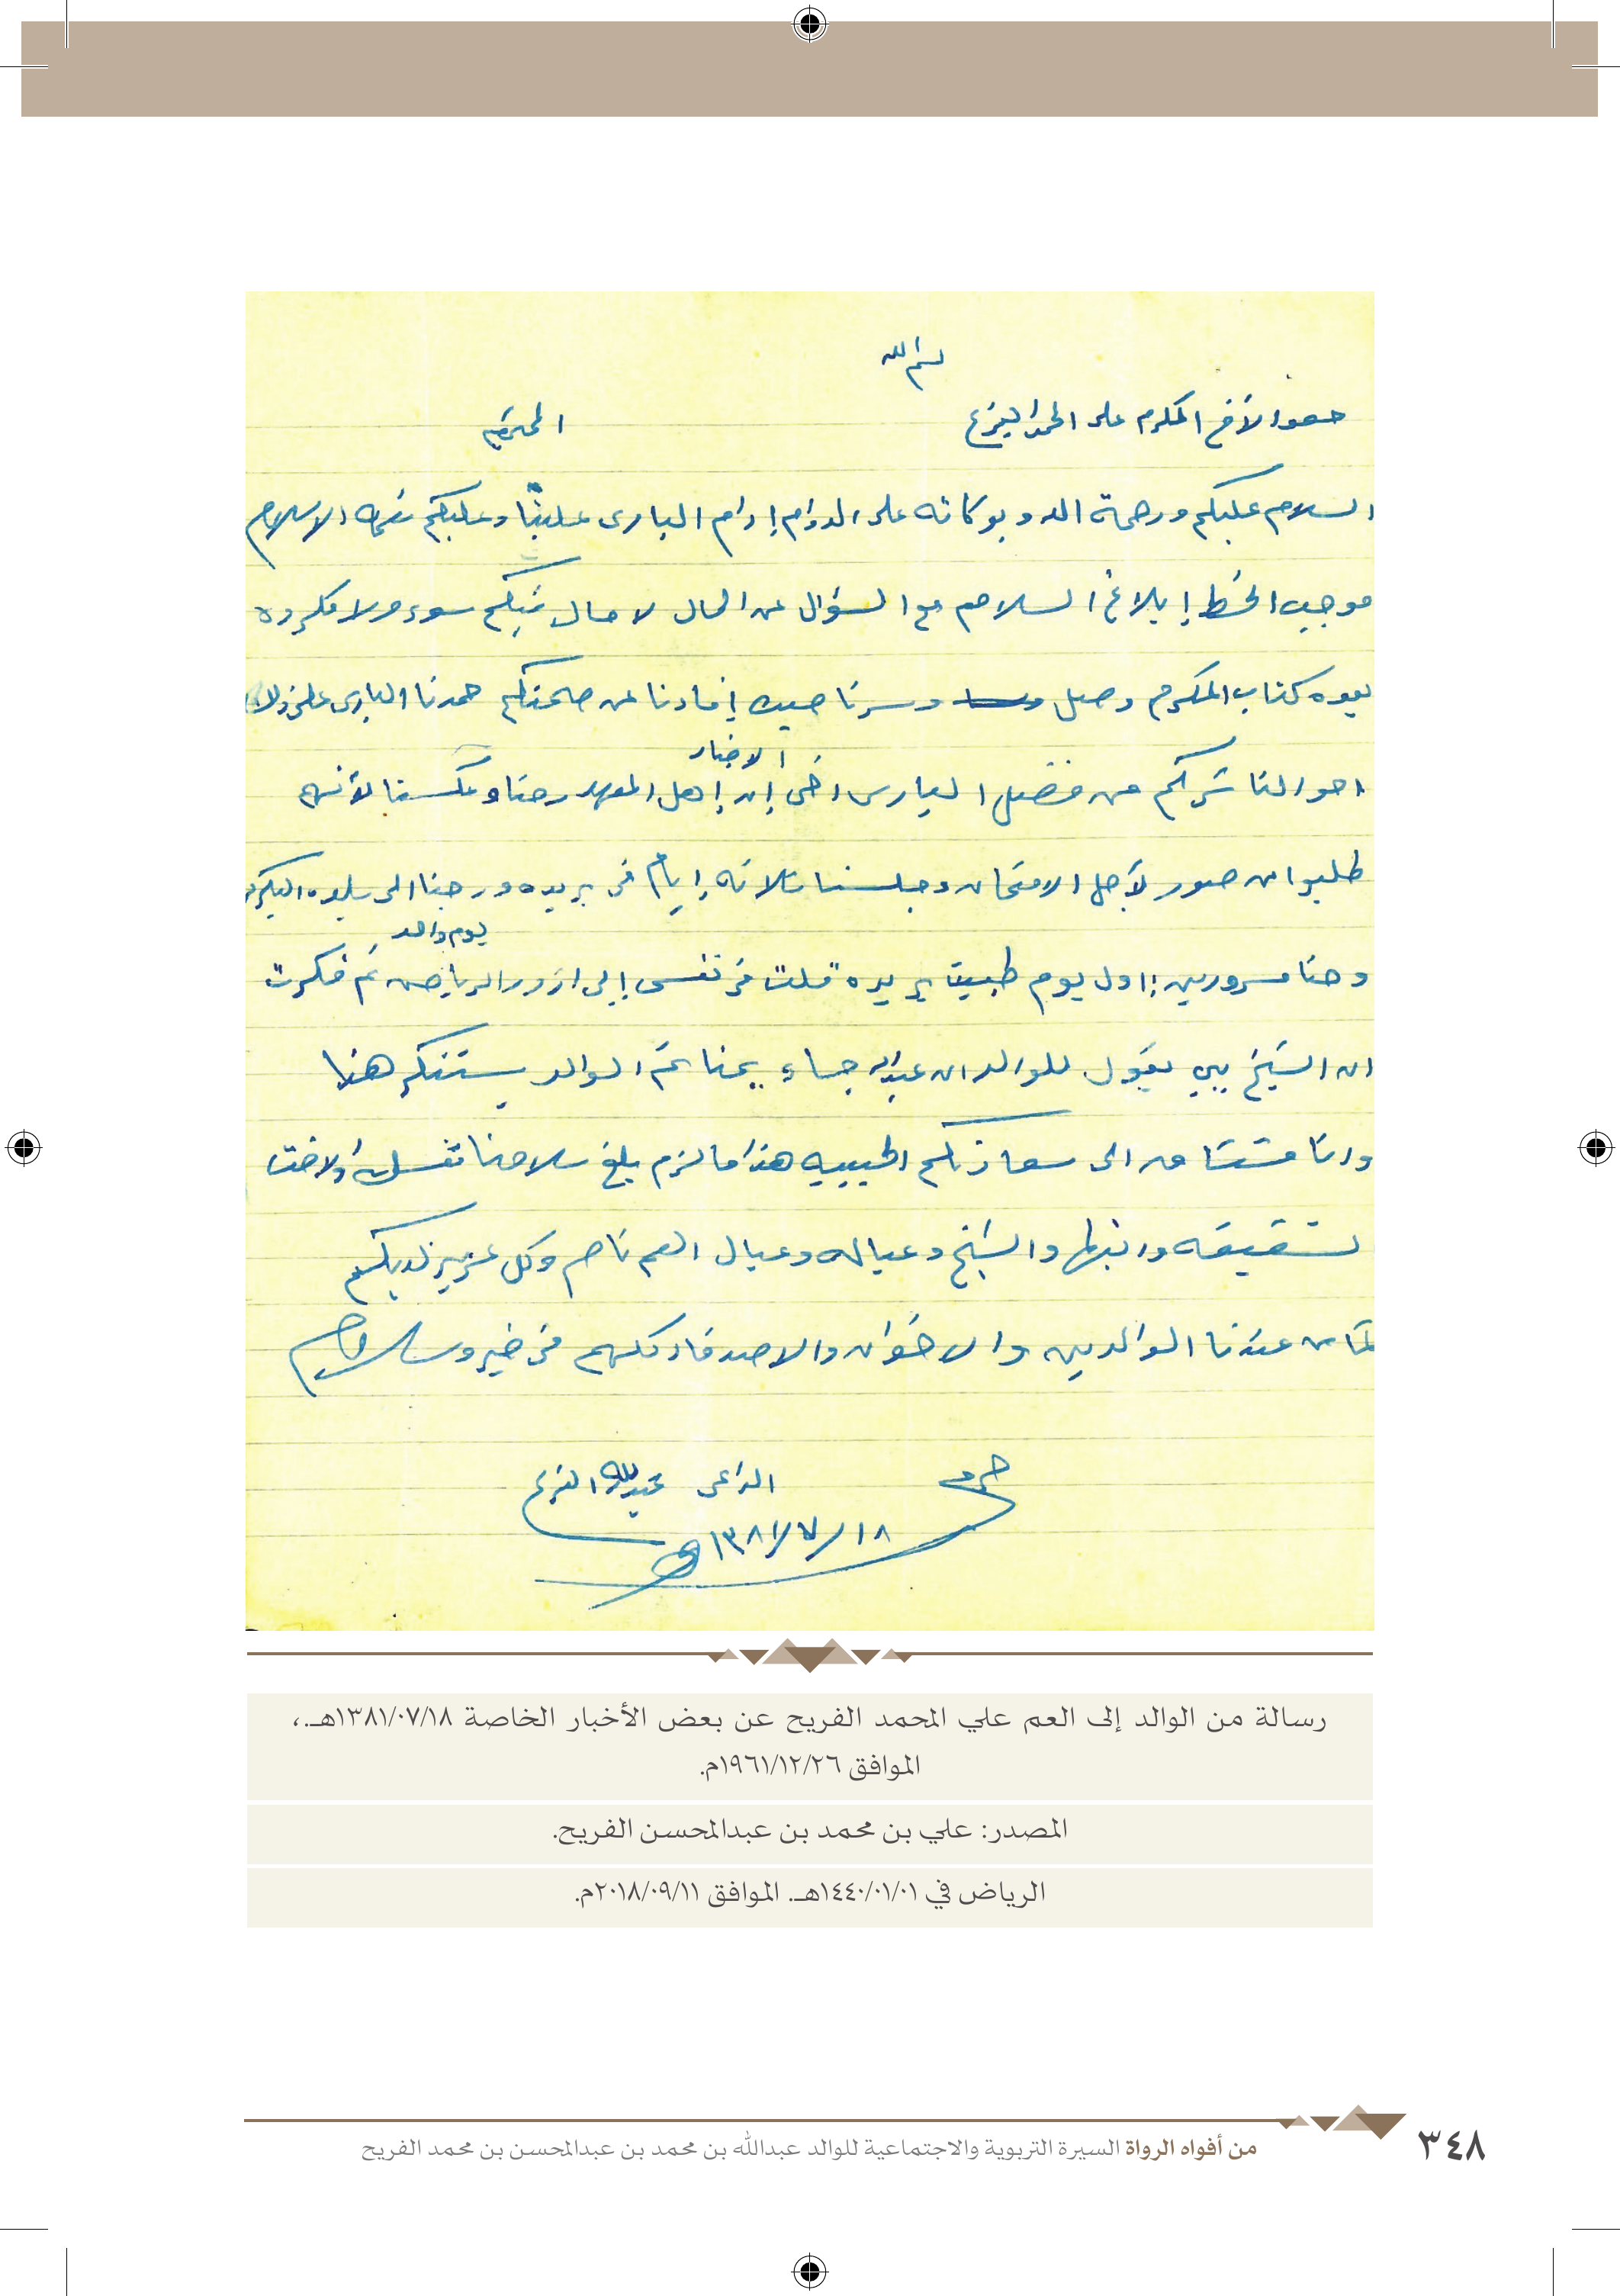 بسم الله
حضرة الأخ المكرم على المحمد الفريح المحترم
السلام عليكم ورحمة الله وبركاته على الدوام إدام البارى علينا وعليكم نعمة الاسلام
موجب الخط إبلاغ السلام مع السؤال عن الحال لا حال بكم سوء ولا مكروه
بعده كتاب المكرم وصل وسرنا حيث إفادنا عن صحتكم حمدنا البارى على ذلك
احوالنا تسركم من فضل البارى اخى الاخبار إن إهل المعهد رحنا وعكسنا لأنهم
طلبوا صور لأجل الامتحان وجلسنا ثلاثه إيام في بريده ورجنا الى بلده البكيريه
وحنا مسرورين اول يوم طبيت بريده قلت في نفسى إلى ازور الرياض يوم واحد ثم فكرت
ان الشيخ يقول للوالد ان عبدالله جاء يمنا ثم الوالد يستنكر هذا
وانا مشتاق الى الحبيبه هذا مالزم بلغ سلامنا نفسك ولاخت
شقيقه وانبها والشيخ وعياله وعيال العم ناصر وكل عزيز لديكم
كما من عندنا الوالدين والاخوان والاصدقاء كلهم في خير وسلام
حرر الداعى عبدالله الفريح
١٣٨١/٧/١٨ هـ
رسالة من الوالد إلى العم علي المحمد الفريح عن بعض الأخبار الخاصة ١٣٨١/٠٧/١٨هـ.،
الموافق ١٩٦١/١٢/٢٦م.
المصدر: علي بن محمد بن عبدالمحسن الفريح.
الرياض في ١٤٤٠/٠١/٠١هـ. الموافق ٢٠١٨/٠٩/١١م.
من أفواه الرواة السيرة التربوية والاجتماعية للوالد عبدالله بن محمد بن عبدالمحسن بن محمد الفريح
٣٤٨